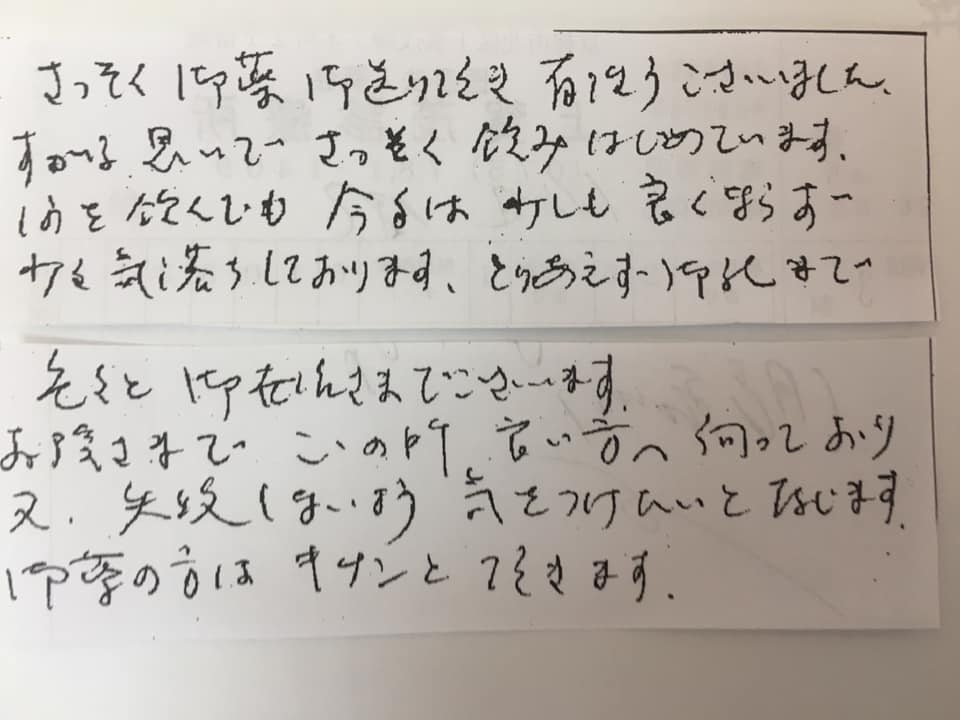 さっそく御薬御送りてくき有はうございました、
すがる思いでさっそく飲みはじめています.
を飲んでも今は少しも良くならず
気落ちしております、とりあえず御礼まで
色々と御世話さまでございます.
お陰さまでこの所、良い方へ向っており
又、失敗しないよう気をつけたいと存じます.
御薬の方はキチンと